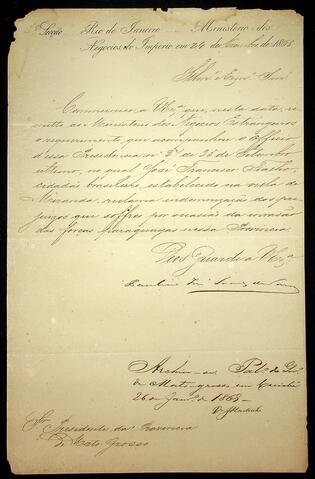 Secção Rio de Janeiro Ministerio dos
Negocios do Imperio em 24 de
Illmo e Exmo Snr
Communico a V Exa que, nesta data, re-
metto ao Ministerio dos Negocios Estrangeiros
o requerimento que acompanhou o officio
d'essa Presidencia nº de 26 de Setembro
ultimo, no qual José Francisco
cidadão brasileiro estabelecido na villa de
Miranda, reclama indemnização dos pre-
juizos que soffreu por occasião da invasão
das forças paraguayas nessa Provincia.
Deos Guarde a V Exa
Paulino José Soares de Souza
Archive-se Pal.º do Gov.º
de Mato-grosso em Cuiabá
26 de Jan.º de 1869
Snr Presidente da Provincia
de Mato Grosso